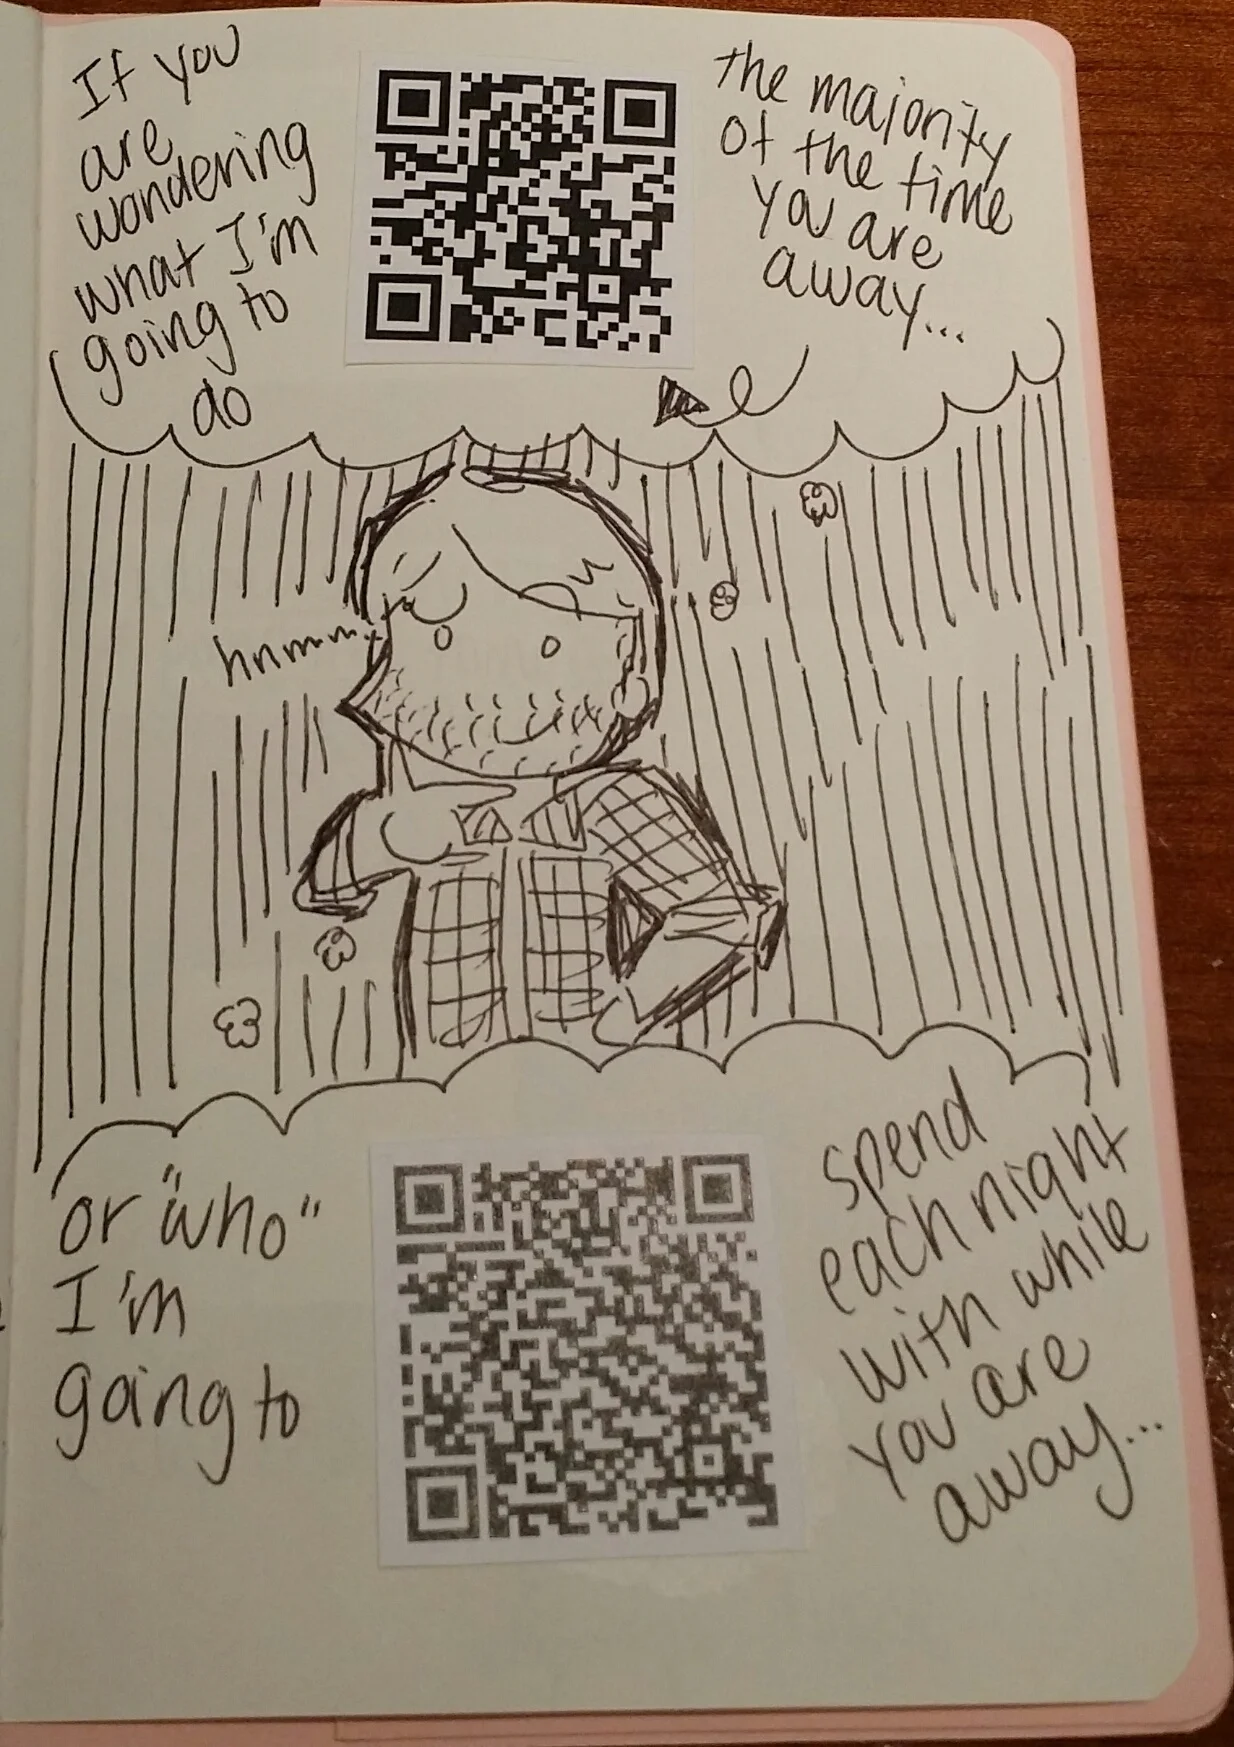 If you
are
wondering
what I'm
going to
do
the majority
of the time
you are
away...
hnmmm...
or "who"
I'm
going to
spend
each night
with while
you are
away...